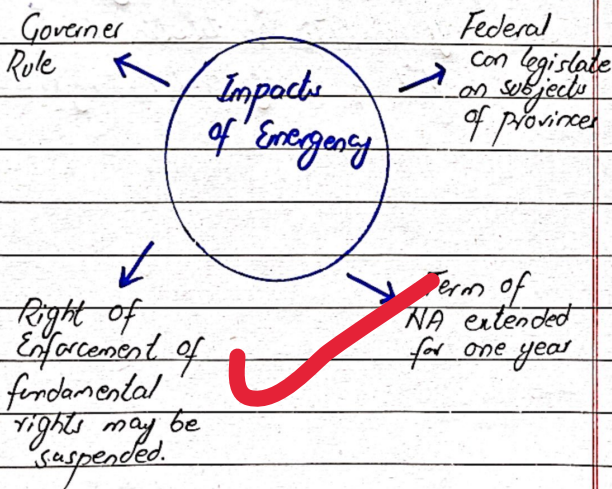 Governer
Rule
Impacts
of Emergency
Federal
can legislate
on subjects
of provinces
Right of
Enforcement of
fundamental
rights may be
suspended.
Term of
NA extended
for one year